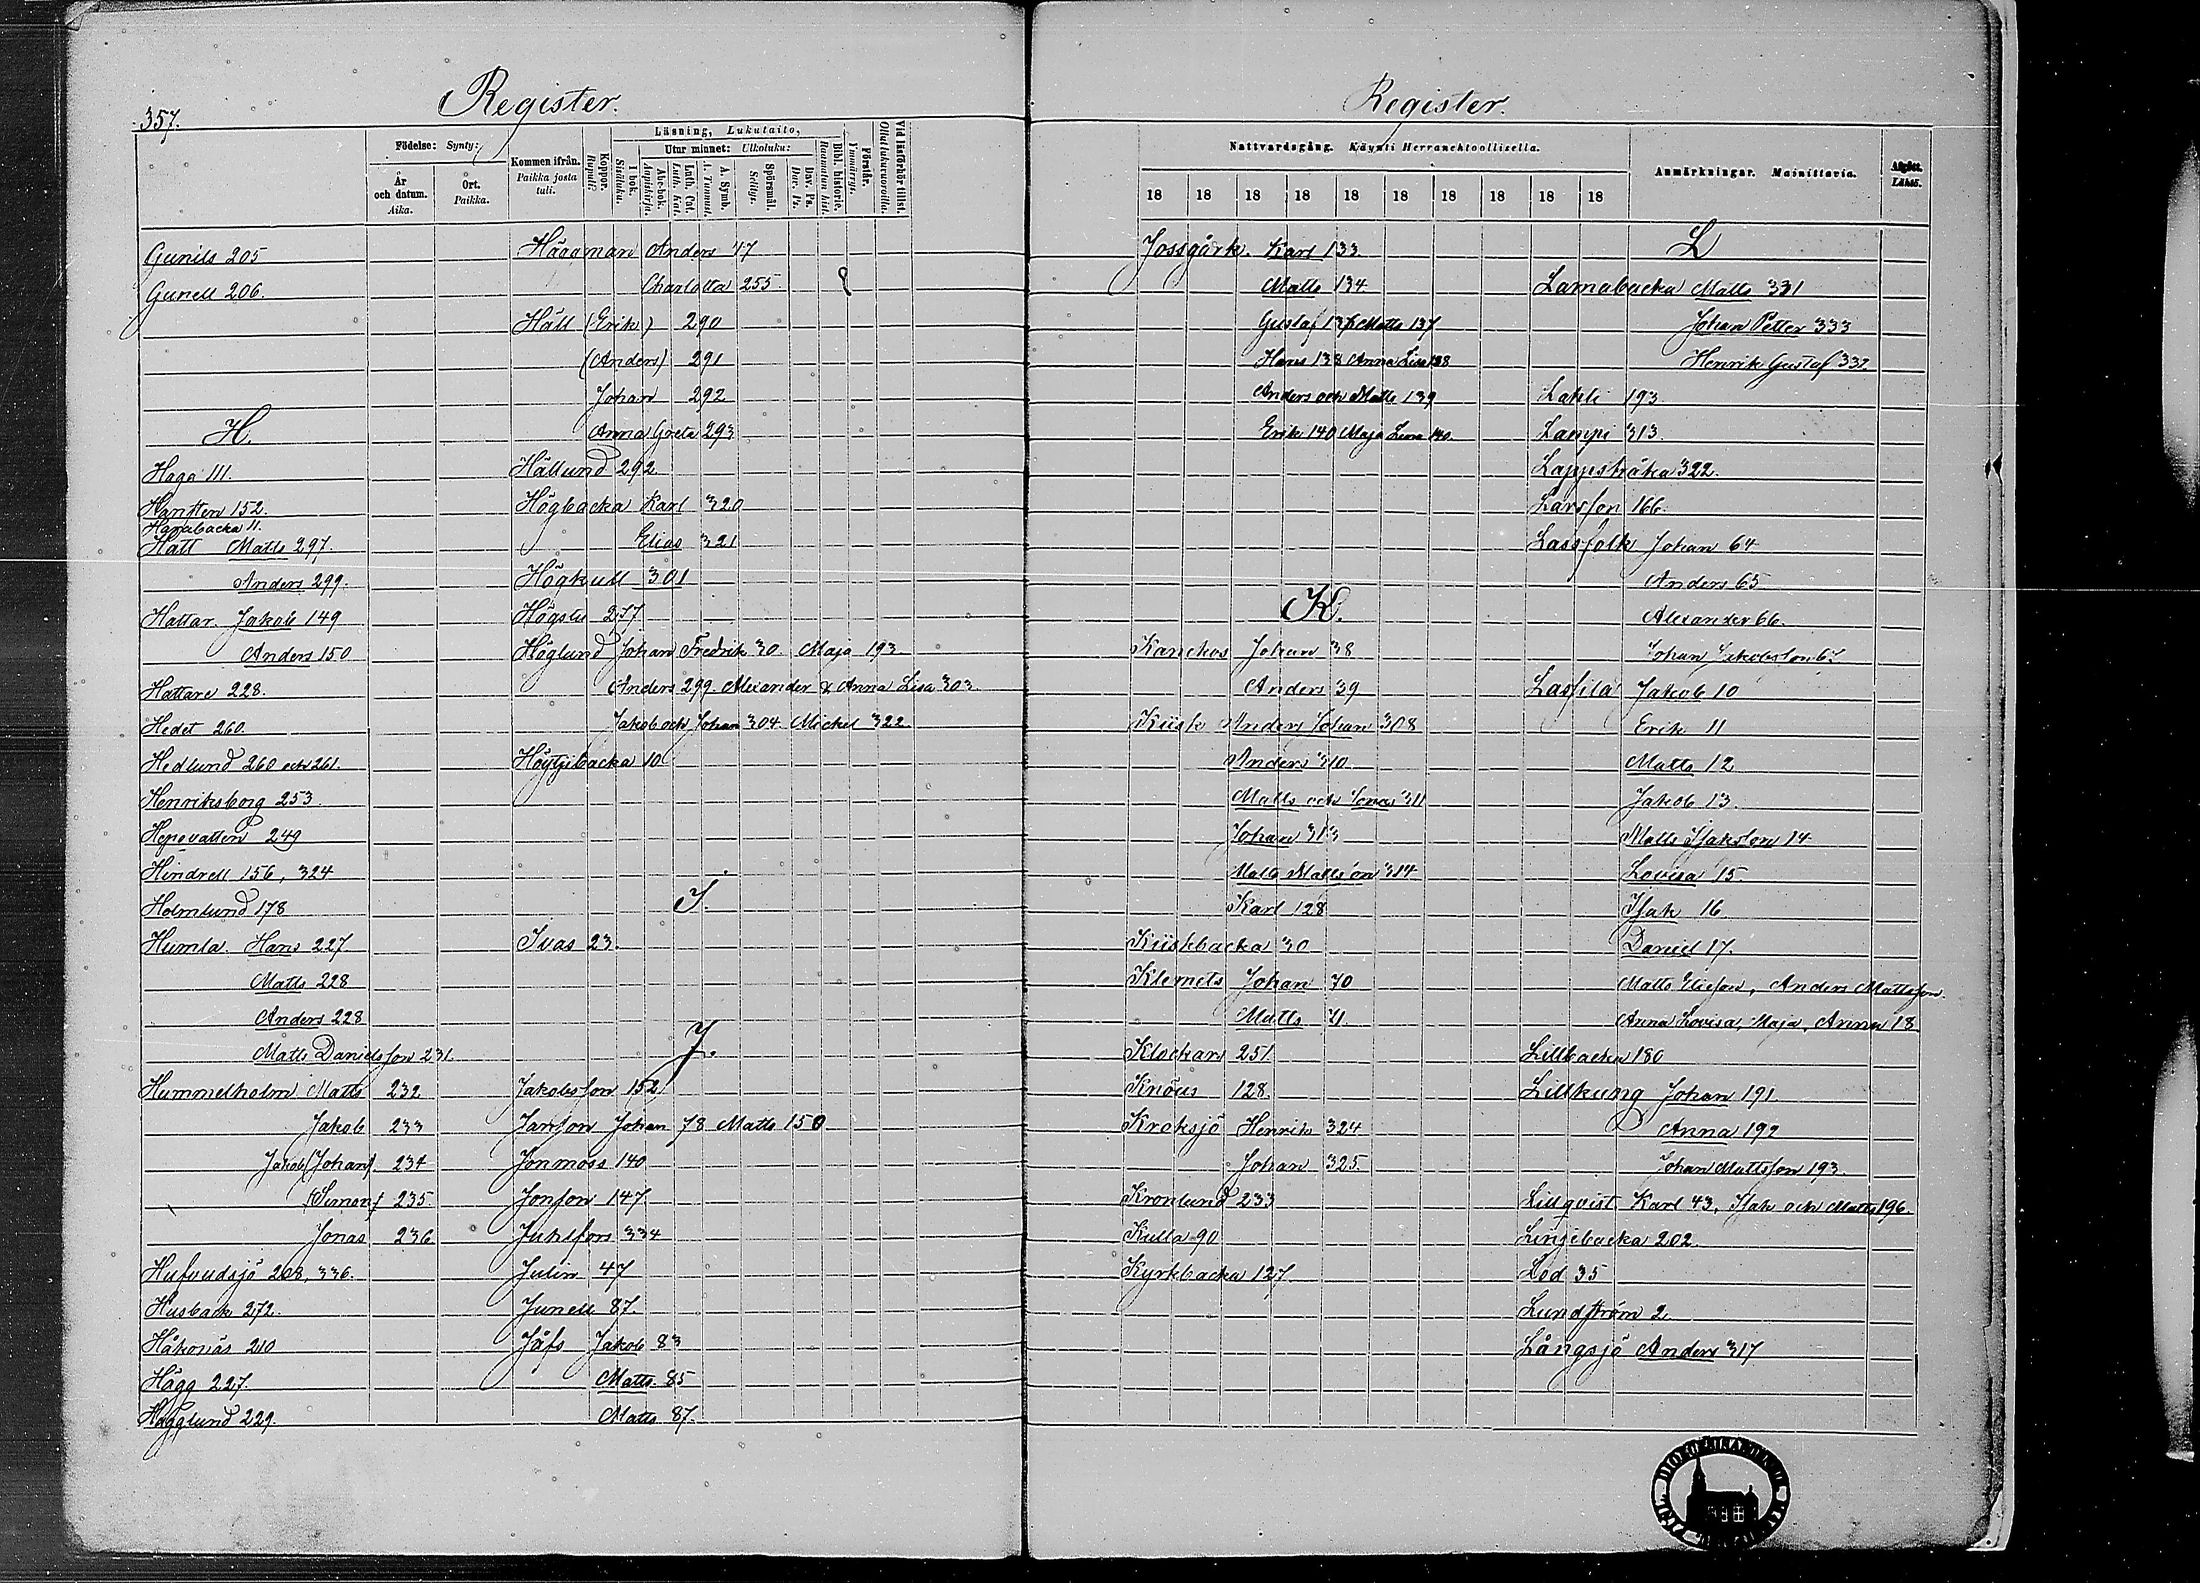 357.
Register.
Födelse: Synty:
År och datum. Aika.
Ort. Paikka.
Kommen ifrån. Paikka josta tuli.
Koppor. Rupuli?
Läsning, Lukutaito,
I bok. Sisäluku.
Utur minnet: Ulkoluku:
Abc-bok. Aapiskirja.
Luth. Cat. Luth. Kat.
A. Symb. A. Tunnust.
Spörsmål. Selitys.
Dav. Ps. Dav. Ps.
Bibl. historie. Raamatun hist.
Förstår. Ymmärrys.
Vid läsförhör tillst. Ollut lukuvuoroilla.
Gunils 205
Gunell 206.
H.
Haga 111.
Hantten 152.
Harabacka 11.
Hatt Matts 297.
Anders 299.
Hattar. Jakob 149
Anders 150
Hattare 228.
Hedet 260.
Hedlund 260 och 261.
Henriksborg 253.
Hepovatten 249
Hindrell 156, 324
Holmlund 178
Humla. Hans 227.
Matts 228
Anders 228
Matts Danielsson 231.
Hummelholm Matts 232
Jakob 233
Jakob (Johan) 234
(Simon) 235.
Jonas 236
Hufvudsjö 208, 336.
Husback 272.
Håkonäs 210
Hägg 227.
Hägglund 229.
Häggman Anders 47
Charlotta 255.
Häll (Erik) 290
(Anders) 291
Johan 292
Anna Greta 293
Hällund 292.
Högbacka Karl 320
Elias 321
Högkull 301
Högste 277
Höglund Johan Fredrik 30 Maja 193.
Anders 299. Alexander & Anna Lisa 303.
Jakob och Johan 304. Mickel 322.
Höytyibacka 10
I.
Ivas 23.
J.
Jakobsson 152
Janson Johan 78 Matts 150
Jonmoss 140
Jonson 147.
Juhlfors 334
Julin 47
Junell 87.
Jåfs Jakob 83
Matts. 85
Matts 87.
Register.
Nattvardsgång. Käynti Herranehtoollisella.
18 18 18 18 18 18 18 18 18 18
Anmärkningar. Mainittavia.
Afgått. Lähtö.
Jossgårk. Karl 133.
Matts 134
Gustaf Matts 137
Hans 138 Anna Lisa 138
Anders och Matts 139
Erik 140 Maja Lena 140.
K.
Kanckos Johan 38
Anders 39
Kiisk Anders Johan 308
Anders 310
Matts och Jonas 311
Johan 313
Matts Mattsson 314
Karl 128
Kiiskbacka 30
Klemets Johan 70
Matts 71.
Klockars 251
Knöus 128
Kreksjö Henrik 324
Johan 325.
Kronlund 233
Kulla 90
Kyrkbacka 127.
L
Lamabacka Matts 331
Johan Petter 333
Henrik Gustaf 332
Lahti 193.
Lampi 313.
Lappstråka 322.
Larsson 166.
Lassfolk Johan 64
Anders 65
Alexander 66.
Johan Jakobsson 67.
Lassila Jakob 10
Erik 11
Matts 12
Jakob 13.
Matts Isaksson 14
Lovisa 15.
Isak 16
Daniel 17.
Matts Eliesson, Anders Mattsson.
Anna Lovisa, Maja, Anna 18
Lillbacka 180
Lillkung Johan 191.
Anna 192
Johan Mattsson 193.
Lillqvist. Karl 43, Isak och Matts 196.
Linjebacka 202.
Lod 35
Lundström 2.
Långsjö Anders 317